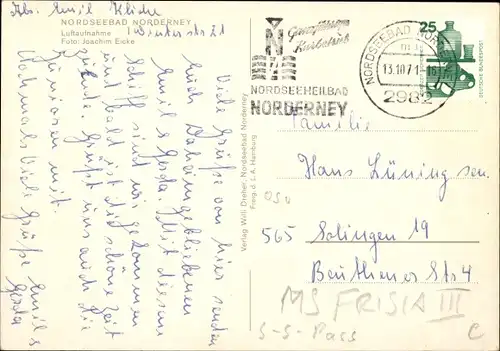 Abs. Emil Kliche
NORDSEEBAD NORDERNEY
Luftaufnahme
Foto: Joachim Eicke
Viele Grüße von hier senden
Euch Daheimgebliebenen
Emil & Gerda. Mit diesem
Schiff sind wir gekommen
und bald ist die schöne Zeit
zu Ende. Grüßt uns auch die
Junioren mit.
Nochmals viele Grüße Emil &
Gerda
Verlag Willi Dreher, Nordseebad Norderney
Freig. d. L.A. Hamburg
NORDSEEHEILBAD
NORDERNEY
NORDSEEBAD NORDERNEY
13.10.71
2982
25
DEUTSCHE BUNDESPOST
Familie
Hans Lüning sen.
565 Solingen 19
Beuthener Str. 4
MS FRISIA III
S-S-Pass
C